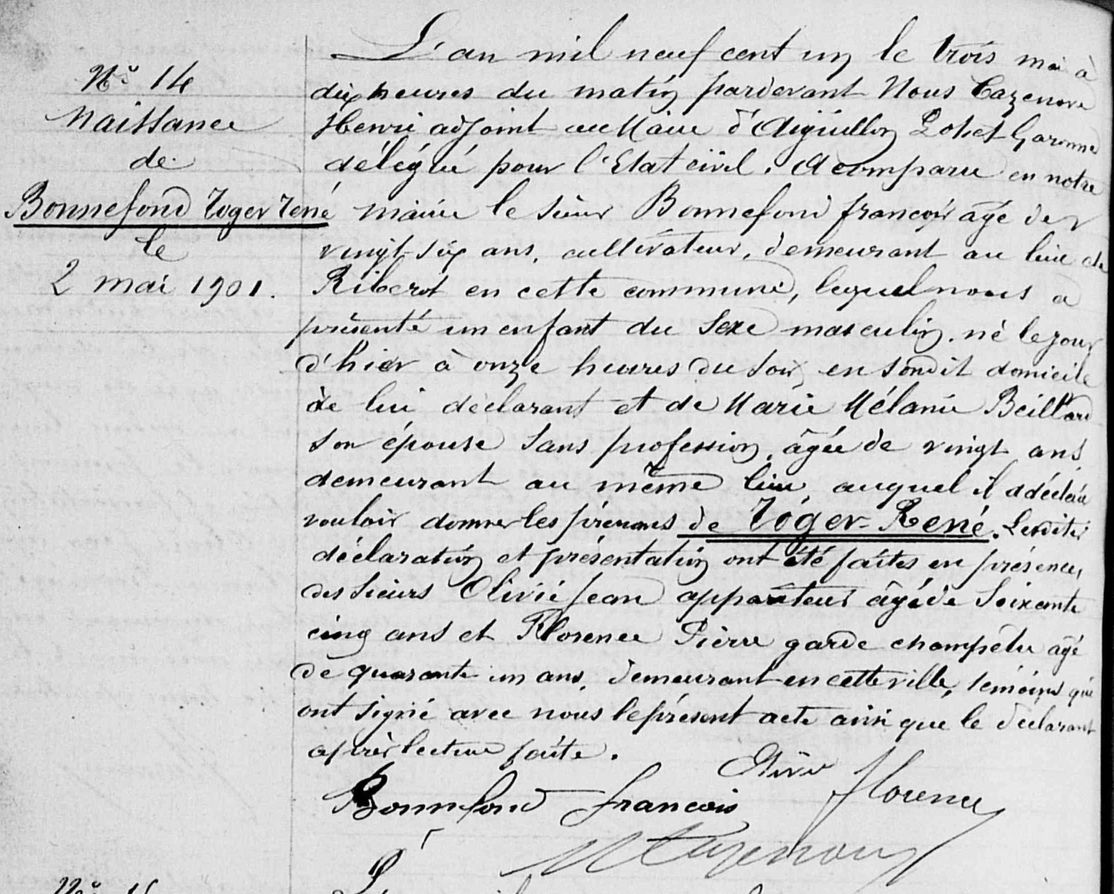 N° 14
Naissance
de
Bonnefond Roger René
le
2 mai 1901.
L'an mil neuf cent un le trois mai à
dix heures du matin pardevant Nous Cazenove
Henri adjoint au Maire d'Aiguillon Lot et Garonne
délégué pour l'Etat civil. A comparu en notre
mairie le sieur Bonnefond françois âgé de
vingt six ans, cultivateur, demeurant au lieu de
Riberot en cette commune, lequel nous a
présenté un enfant du sexe masculin, né le jour
d'hier à onze heures du soir en sondit domicile
de lui déclarant et de Marie Mélanie Beillard
son épouse sans profession, âgée de vingt ans
demeurant au même lieu auquel il a déclaré
vouloir donner les prénoms de Roger René. Lesdites
déclaration et présentation ont été faites en présence
des sieurs Olivié Jean appariteur âgé de soixante
cinq ans et Florence Pierre garde champêtre âgé
de quarante un ans, demeurant en cette ville, témoins qui
ont signé avec nous le présent acte ainsi que le déclarant
après lecture faite.
Olivié
florence
Bonnefond françois
Cazenove
N° 15